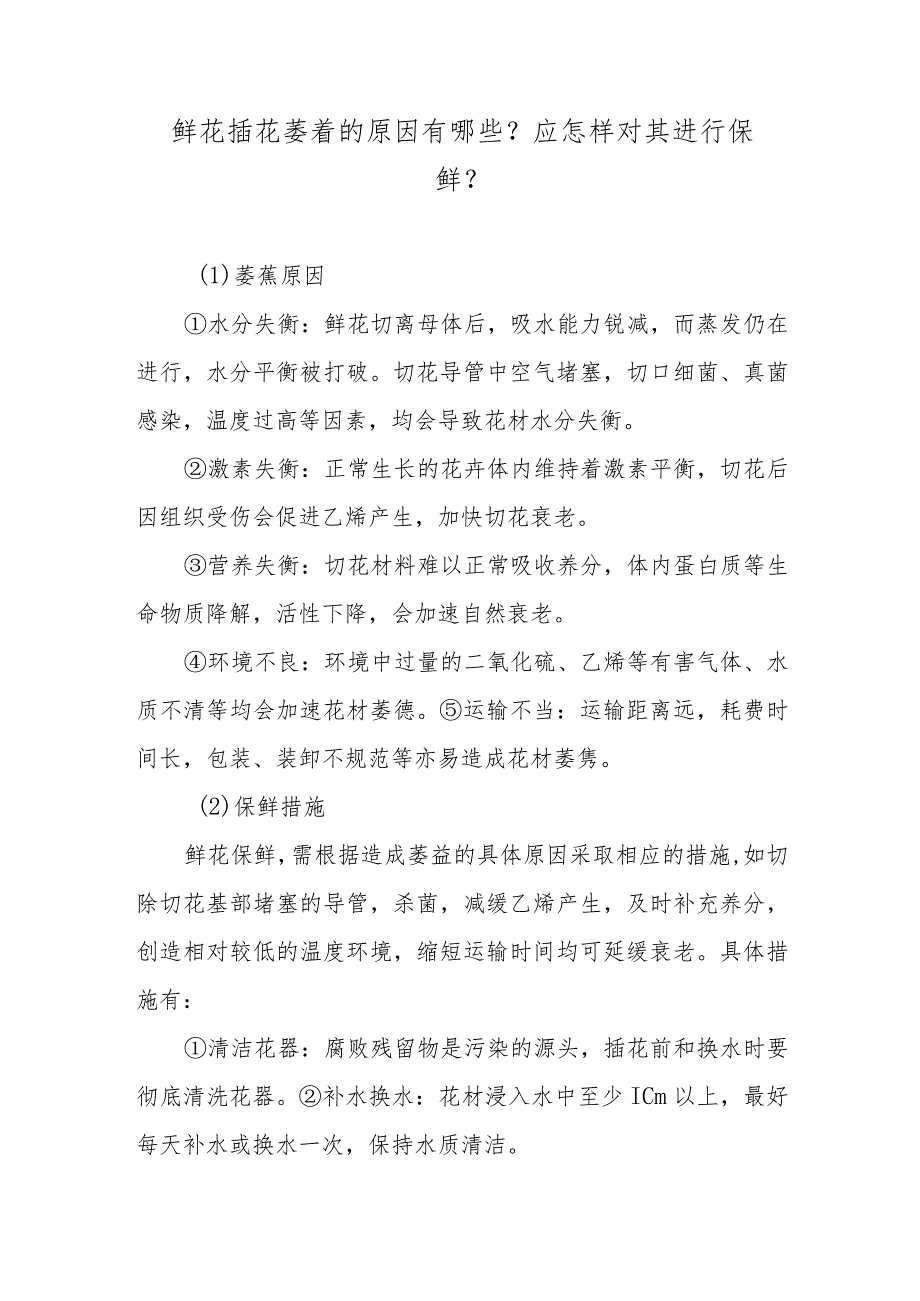 鲜花插花萎着的原因有哪些？应怎样对其进行保
鲜？
(1)萎蕉原因
①水分失衡：鲜花切离母体后，吸水能力锐减，而蒸发仍在
进行，水分平衡被打破。切花导管中空气堵塞，切口细菌、真菌
感染，温度过高等因素，均会导致花材水分失衡。
②激素失衡：正常生长的花卉体内维持着激素平衡，切花后
因组织受伤会促进乙烯产生，加快切花衰老。
③营养失衡：切花材料难以正常吸收养分，体内蛋白质等生
命物质降解，活性下降，会加速自然衰老。
④环境不良：环境中过量的二氧化硫、乙烯等有害气体、水
质不清等均会加速花材萎德。⑤运输不当：运输距离远，耗费时
间长，包装、装卸不规范等亦易造成花材萎隽。
(2)保鲜措施
鲜花保鲜,需根据造成萎益的具体原因采取相应的措施,如切
除切花基部堵塞的导管，杀菌，减缓乙烯产生，及时补充养分，
创造相对较低的温度环境，缩短运输时间均可延缓衰老。具体措
施有：
①清洁花器：腐败残留物是污染的源头，插花前和换水时要
彻底清洗花器。②补水换水：花材浸入水中至少ICm以上，最好
每天补水或换水一次，保持水质清洁。